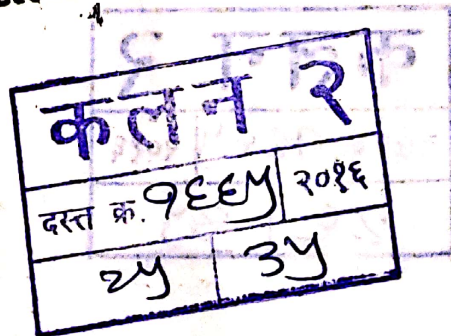 कलन २
दस्त क्र. १६६५ २०१६
२५ ३५